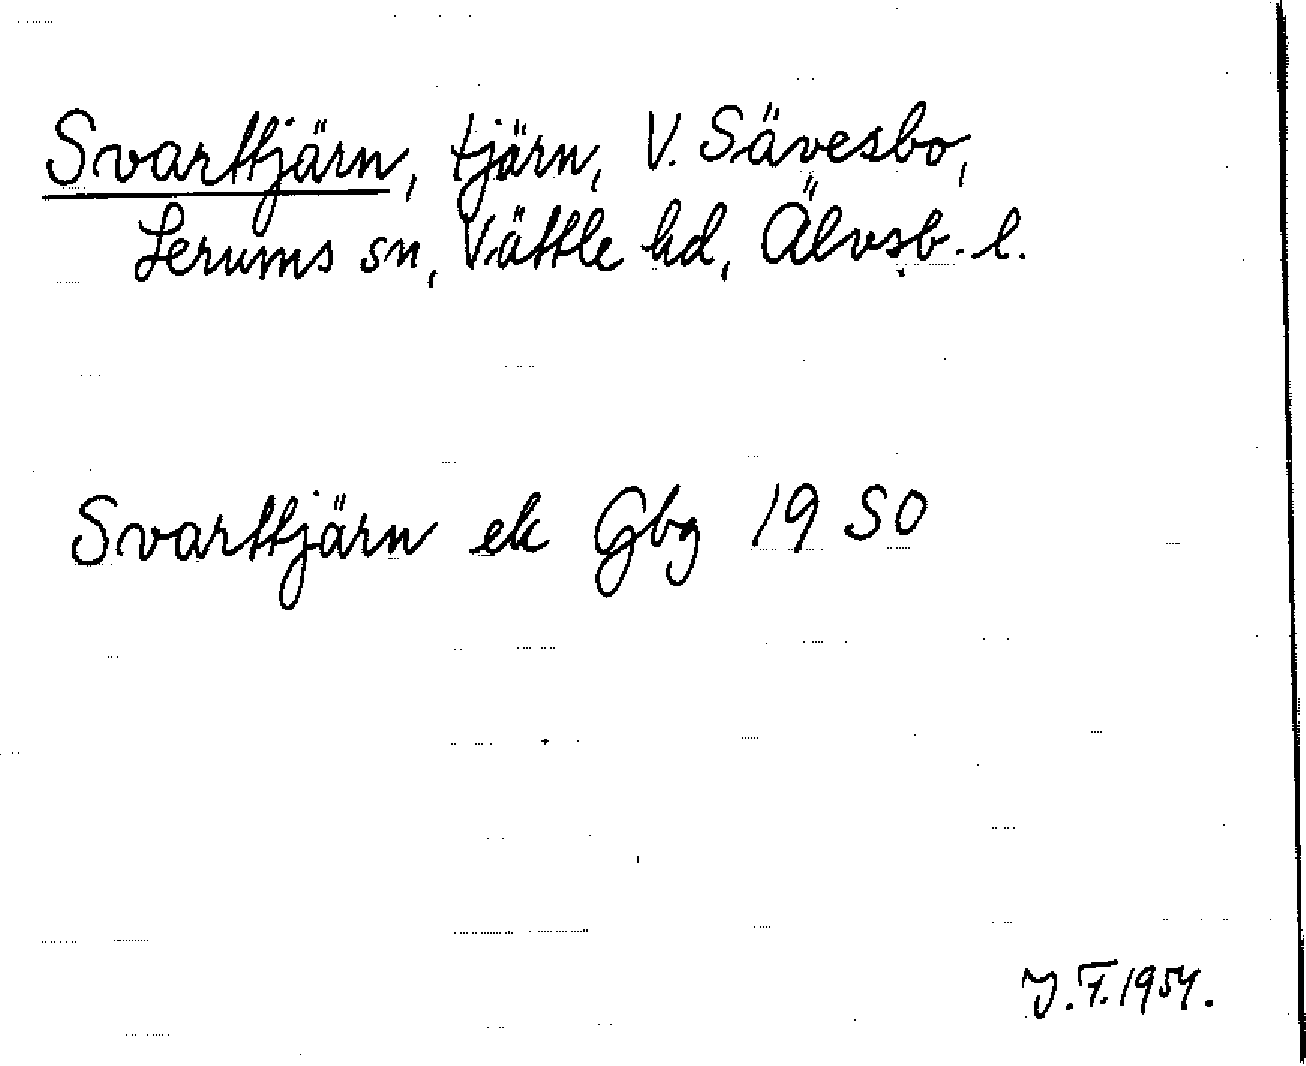 Svarttjärn, tjärn, V. Sävesbo,
Lerums sn, Vättle hd, Älvsb. l.
Svarttjärn ek Gbg 19 SO
J.F. 1954.